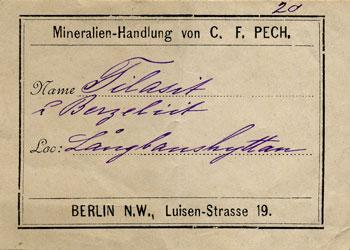 20
Mineralien-Handlung von C. F. PECH.
Name Tilasit
& Berzeliit
Loc: Långbanshyttan
BERLIN N.W., Luisen-Strasse 19.